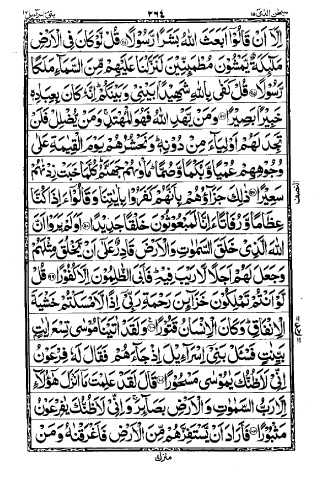 سبحن الذی ١٥ ٢٦٤ بنی اسرآءیل ١٧
اِلَّاۤ اَنْ قَالُوْۤا اَبَعَثَ اللّٰهُ بَشَرًا رَّسُوْلًا۝ قُلْ لَّوْ كَانَ فِی الْاَرْضِ
مَلٰٓئِكَةٌ یَّمْشُوْنَ مُطْمَئِنِّیْنَ لَنَزَّلْنَا عَلَیْهِمْ مِّنَ السَّمَآءِ مَلَكًا
رَّسُوْلًا۝ قُلْ كَفٰی بِاللّٰهِ شَهِیْدًۢا بَیْنِیْ وَبَیْنَكُمْ ؕ اِنَّهٗ كَانَ بِعِبَادِهٖ
خَبِیْرًۢا بَصِیْرًا۝ وَمَنْ یَّهْدِ اللّٰهُ فَهُوَ الْمُهْتَدِ ۚ وَمَنْ یُّضْلِلْ فَلَنْ
تَجِدَ لَهُمْ اَوْلِیَآءَ مِنْ دُوْنِهٖ ؕ وَنَحْشُرُهُمْ یَوْمَ الْقِیٰمَةِ عَلٰی
وُجُوْهِهِمْ عُمْیًا وَّبُكْمًا وَّصُمًّا ؕ مَاْوٰىهُمْ جَهَنَّمُ ؕ كُلَّمَا خَبَتْ زِدْنٰهُمْ
سَعِیْرًا۝ ذٰلِكَ جَزَآؤُهُمْ بِاَنَّهُمْ كَفَرُوْا بِاٰیٰتِنَا وَقَالُوْۤا ءَاِذَا كُنَّا
عِظَامًا وَّرُفَاتًا ءَاِنَّا لَمَبْعُوْثُوْنَ خَلْقًا جَدِیْدًا۝ اَوَلَمْ یَرَوْا اَنَّ
اللّٰهَ الَّذِیْ خَلَقَ السَّمٰوٰتِ وَالْاَرْضَ قَادِرٌ عَلٰۤی اَنْ یَّخْلُقَ مِثْلَهُمْ
وَجَعَلَ لَهُمْ اَجَلًا لَّا رَیْبَ فِیْهِ ؕ فَاَبَی الظّٰلِمُوْنَ اِلَّا كُفُوْرًا۝ قُلْ
لَّوْ اَنْتُمْ تَمْلِكُوْنَ خَزَآئِنَ رَحْمَةِ رَبِّیْۤ اِذًا لَّاَمْسَكْتُمْ خَشْیَةَ
الْاِنْفَاقِ ؕ وَكَانَ الْاِنْسَانُ قَتُوْرًا۝ وَلَقَدْ اٰتَیْنَا مُوْسٰی تِسْعَ اٰیٰتٍۭ
بَیِّنٰتٍ فَسْـَٔلْ بَنِیْۤ اِسْرَآءِیْلَ اِذْ جَآءَهُمْ فَقَالَ لَهٗ فِرْعَوْنُ
اِنِّیْ لَاَظُنُّكَ یٰمُوْسٰی مَسْحُوْرًا۝ قَالَ لَقَدْ عَلِمْتَ مَاۤ اَنْزَلَ هٰۤؤُلَآءِ
اِلَّا رَبُّ السَّمٰوٰتِ وَالْاَرْضِ بَصَآئِرَ ۚ وَاِنِّیْ لَاَظُنُّكَ یٰفِرْعَوْنُ
مَثْبُوْرًا۝ فَاَرَادَ اَنْ یَّسْتَفِزَّهُمْ مِّنَ الْاَرْضِ فَاَغْرَقْنٰهُ وَمَنْ
النصف
منزل